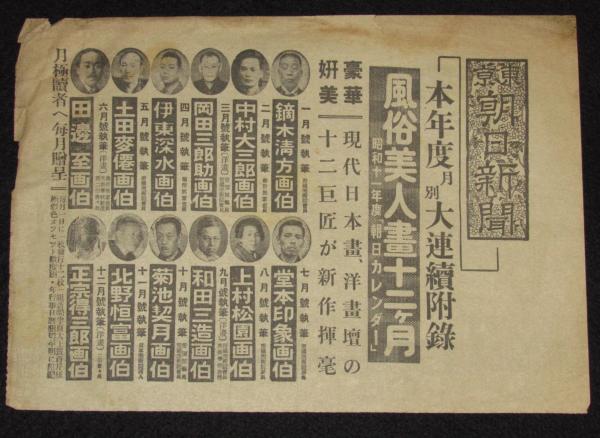 東京朝日新聞
「本年度月別大連續附録」
風俗美人畫十二ヶ月
昭和十一年度朝日カレンダー
豪華 妍美
現代日本畫、洋畫壇の
十二巨匠が新作揮毫
一月號執筆
鏑木清方画伯
二月號執筆
中村大三郎画伯
三月號執筆（洋畫）
岡田三郎助画伯
四月號執筆
伊東深水画伯
五月號執筆
土田麥僊画伯
六月號執筆（洋畫）
田邊至画伯
七月號執筆
堂本印象画伯
八月號執筆
上村松園画伯
九月號執筆（洋畫）
和田三造画伯
十月號執筆
菊池契月画伯
十一月號執筆
北野恒富画伯
十二月號執筆（洋畫）
正宗得三郎画伯
月極讀者へ毎月贈呈